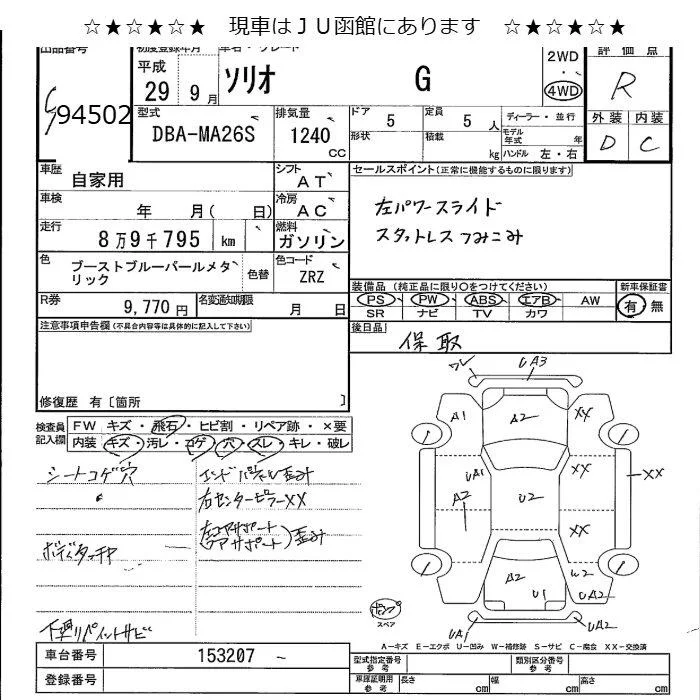 ☆★☆★☆★ 現車はＪＵ函館にあります ☆★☆★☆★
出品番号 初度登録年月 車名・グレード 2WD 評価点
94502 平成 29 9月 ソリオ G 4WD R
型式 DBA-MA26S 排気量 1240 CC
ドア 5 定員 5人 ディーラー・並行 外装 内装
形状 積載 kg モデル年式 年 D C
ハンドル 左・右
車歴 自家用 シフト AT
セールスポイント(正常に機能するものに限ります)
車検 年 月( 日) 冷房 AC
左パワースライド
走行 8万9千795 km 燃料 ガソリン
スタットレスつみこみ
色 ブーストブルーパールメタリック 色替 色コード ZRZ
装備品 (純正品に限り○をつけてください) 新車保証書
PS・PW・ABS・エアB・AW 有・無
SR・ナビ・TV・カワ
R券 9,770円 名変通知期限 月 日
後日品 保 取
注意事項申告欄(不具合内容等は具体的に記入して下さい)
修復歴 有〔箇所 〕
検査員記入欄 FW キズ・飛石・ヒビ割・リペア跡・×要
内装 キズ・汚レ・コゲ・穴・スレ・キレ・破レ
シートコゲ穴
エンドパネル歪み
右センターピラーXX
ボディタッチヤ
左コアサポート
(コアサポート) 歪み
下廻りペイントサビ
ワレ UA3
A1 A2 XX
UA1 XX
A2 U2 XX
XX
A2 U1 W2 UA2
UA1 UA2
ポンプ
スペア
A－キズ E－エクボ U－凹み W－補修跡 S－サビ C－腐食 XX－交換済
車台番号 153207
登録番号
型式指定番号 参考 類別区分番号 参考
車庫証明用 参考 長さ cm 幅 cm 高さ cm